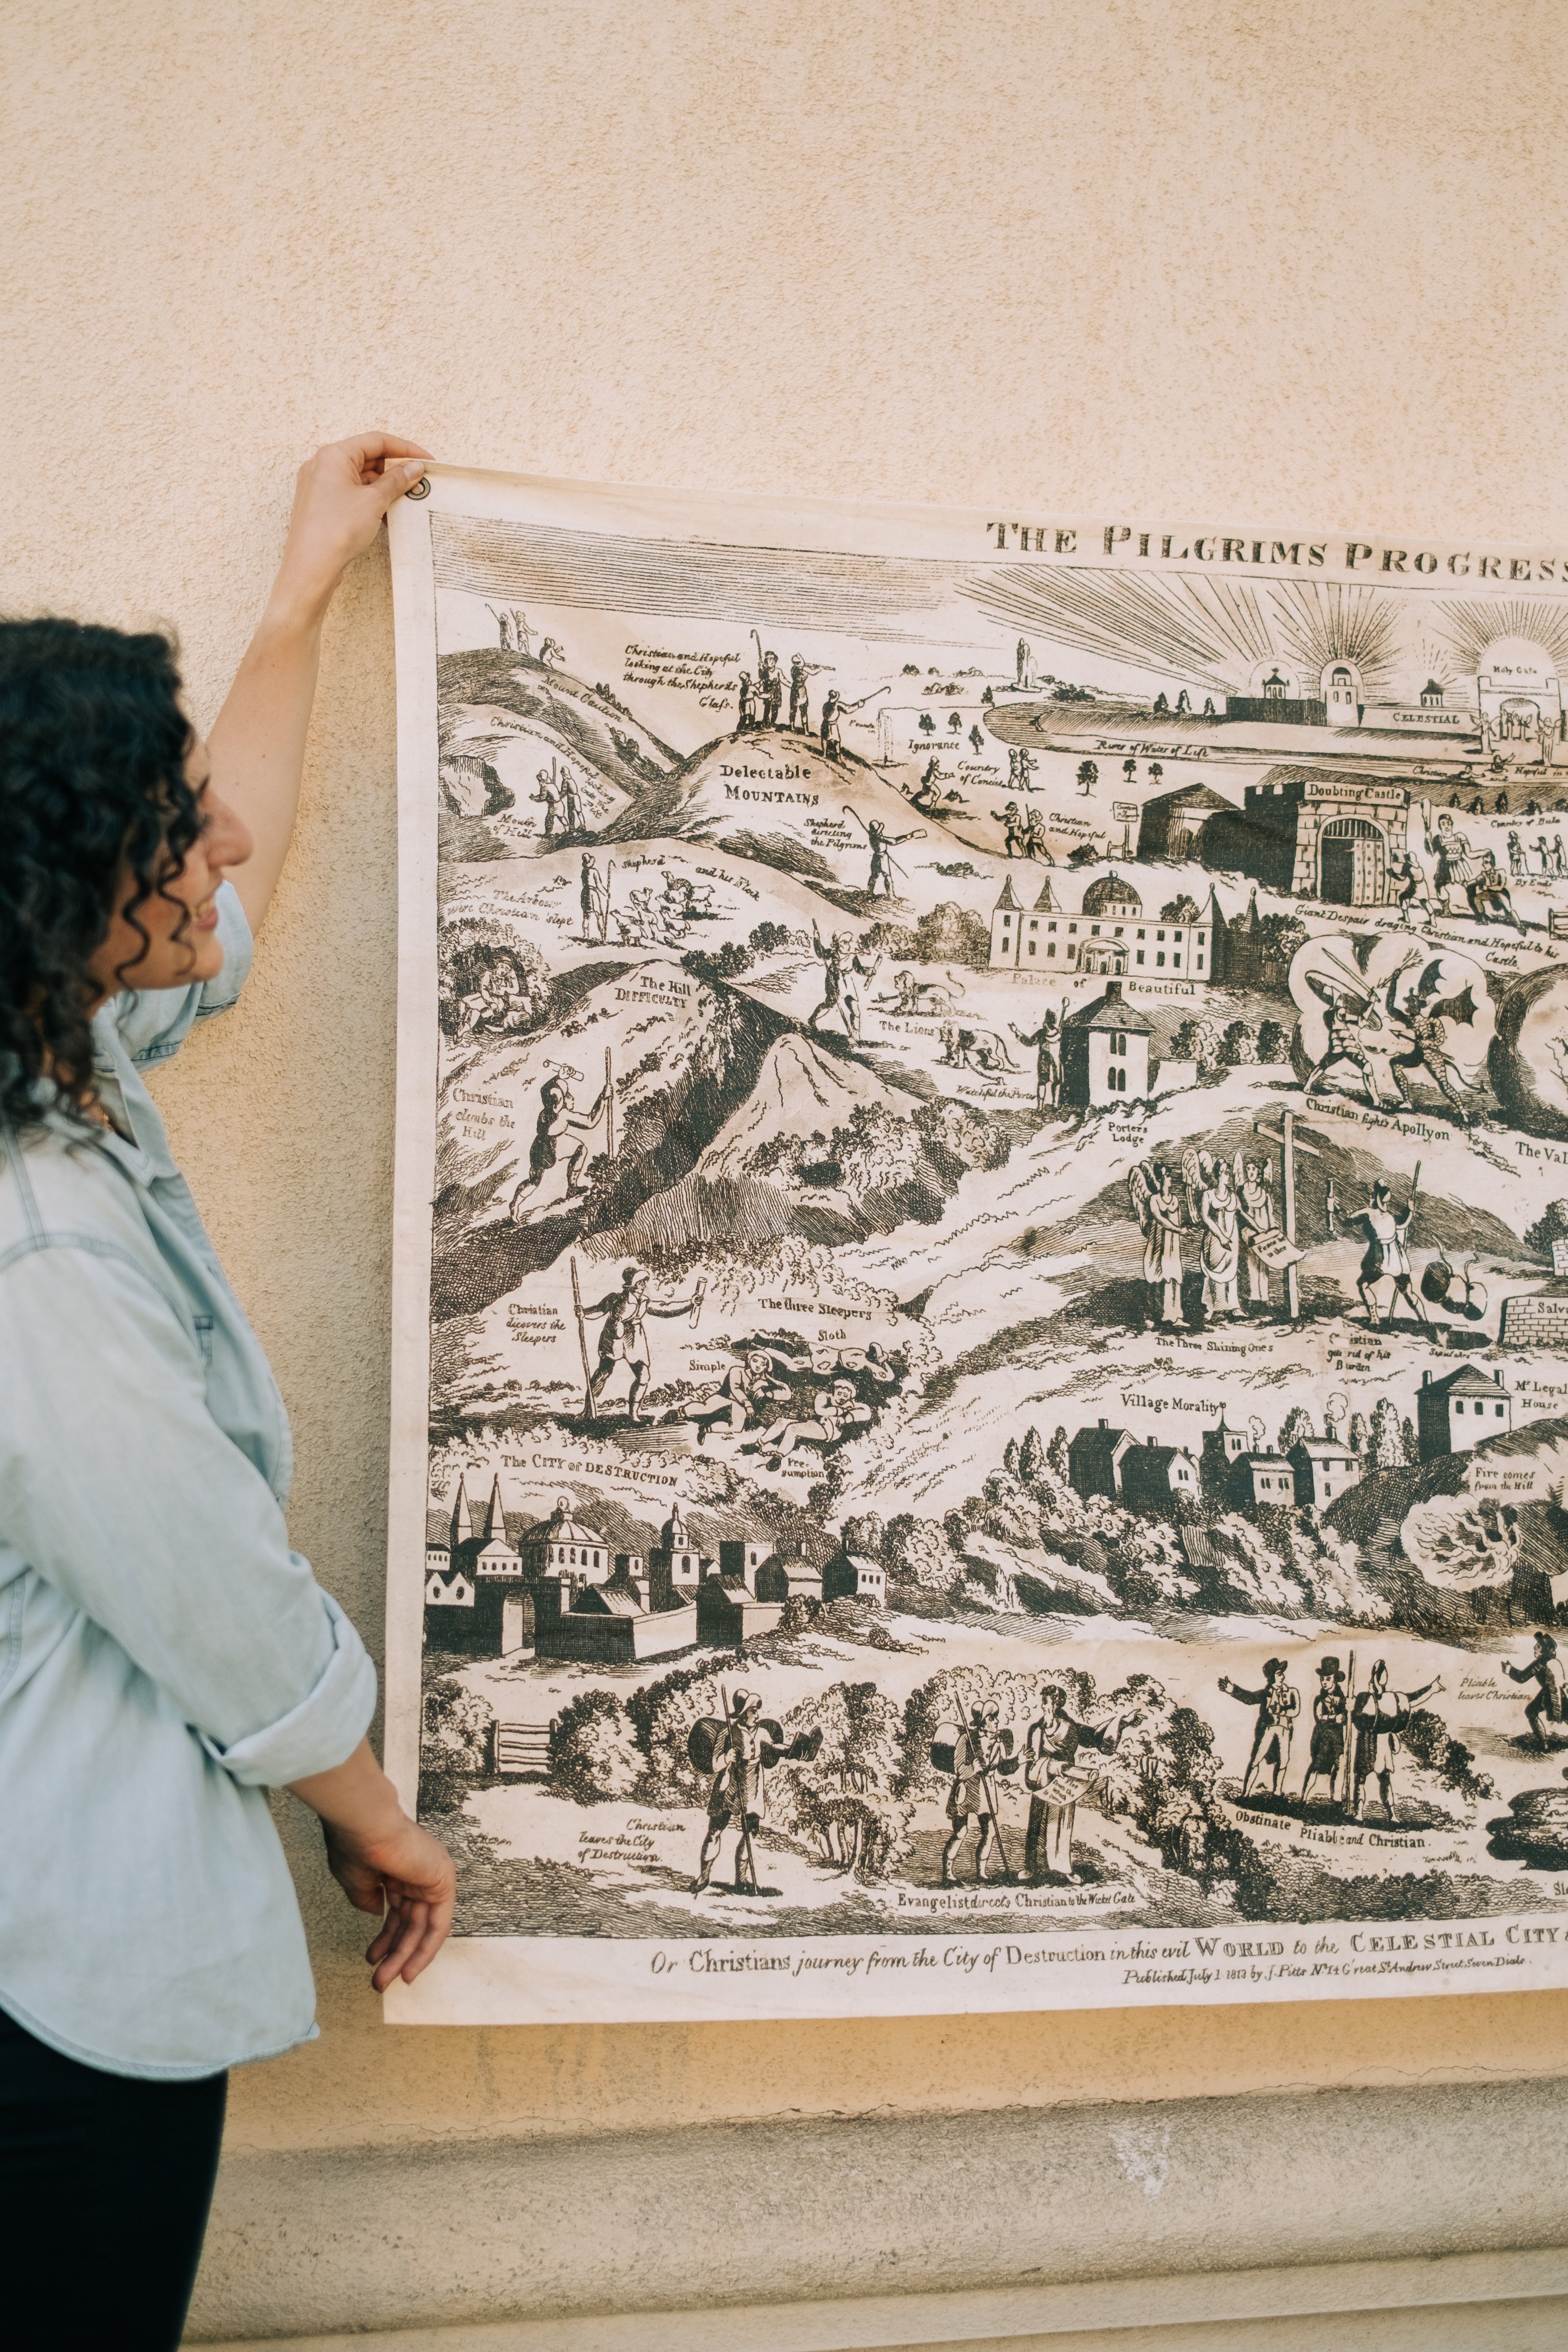 THE PILGRIMS PROGRESS
Christian and Hopeful
looking at the City
through the Shepherds
Glass.
Mount Caution
Holy Gate
CELESTIAL
Christian and Hopeful
Ignorance
River of Water of Life
Country
of Conceit
Delectable
MOUNTAINS
Doubting Castle
Christian
Hopeful
Mouth
of Hell
Shepherd
directing
the Pilgrims
Christian
and Hopeful
By Ends
Shepherd and his Flock
The Arbour
were Christian slept
Giant Despair draging Christian and Hopeful to his
Castle.
The Hill
DIFFICULTY
Palace of Beautiful
The Lions
Watchful the Porter
Christian
climbs the
Hill
Porters
Lodge
Christian fights Apollyon
The Val
Christian
dicovers the
Sleepers
The three Sleepers
Sloth
Simple
Pre-
sumption
The Three Shining Ones
Christian
gets rid of his
Burden
Sepulchre
Salv
Village Morality
Mr Legal
House
The CITY of DESTRUCTION
Fire comes
from the Hill
Pliable
leaves Christian
Christian
leaves the City
of Destruction.
Obstinate Pliable and Christian.
Evangelist directs Christian to the Wicket Gate
Or Christians journey from the City of Destruction in this evil WORLD to the CELESTIAL CITY
Published July 1 1813 by J. Pitts No 14 Great St Andrew Street Seven Dials.